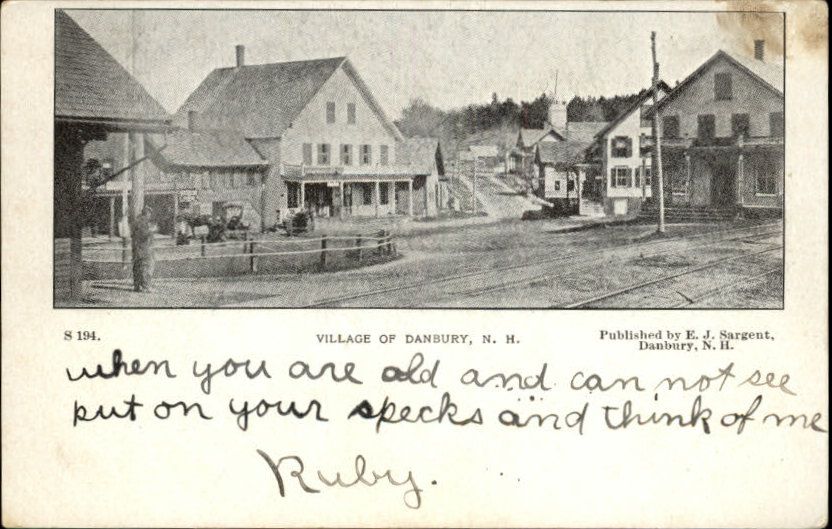 S 194.
VILLAGE OF DANBURY, N. H.
Published by E. J. Sargent,
Danbury, N. H.
when you are old and can not see
put on your specks and think of me
Ruby.